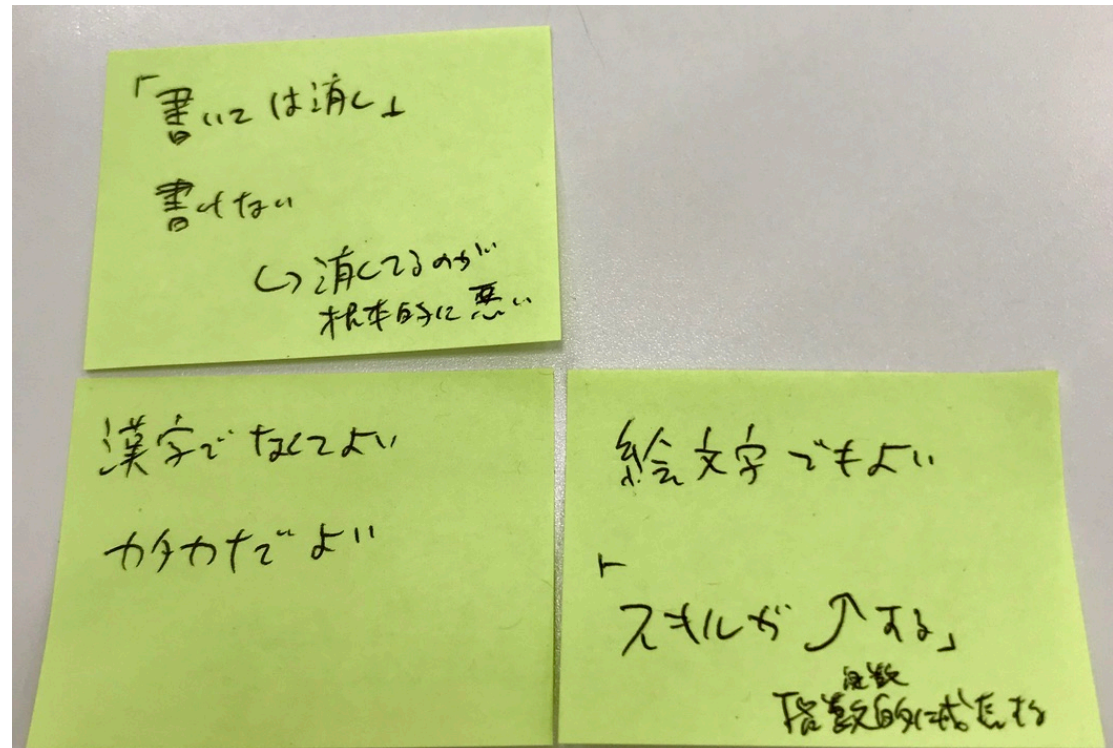 「書いては消し」
書けない
↪消してるのが
根本的に悪い
漢字でなくてよい
カタカナでよい
絵文字でもよい
「
スキルが⤴する」
指数的に